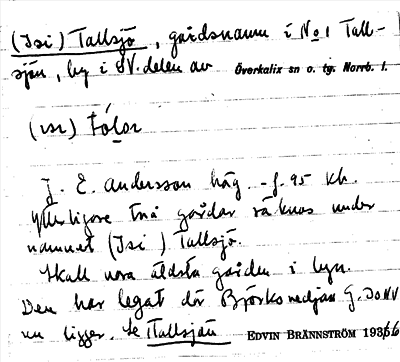 (Isi) Tallsjö, gårdsnamn i No 1 Tall-
sjön, by i SV. delen av Överkalix sn o. tg. Norrb. l.
(ısı)
J. E. Andersson häg. - f. 95 kh.
Ytterligare två gårdar räknas under
namnet (Isi) Tallsjö.
Skall vara äldsta gården i byn.
Den har legat där Björks nedjan
nu ligger. Se Tallsjön EDVIN BRÄNNSTRÖM 1936